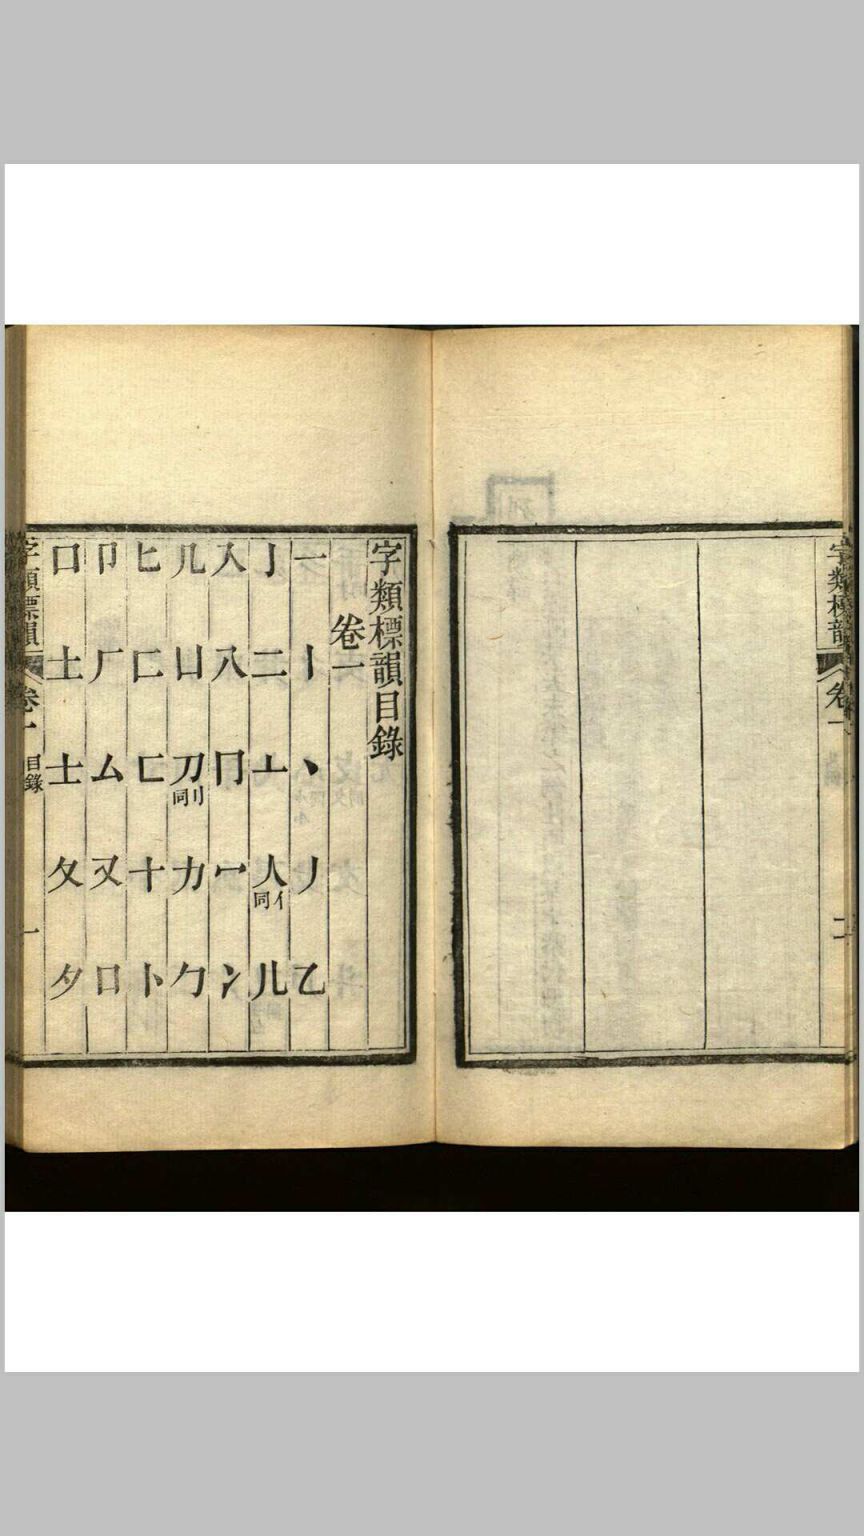 字類標韻
卷一
二
字類標韻目錄
卷一
一 丨 丶 丿 乙
亅 二 亠 人 亻同 儿
入 八 冂 冖 冫
几 凵 刀 刂同 力 勹
匕 匚 匸 十 卜
卩 厂 厶 又 口
囗 土 士 夂 夕
字類標韻
卷一
目錄
一